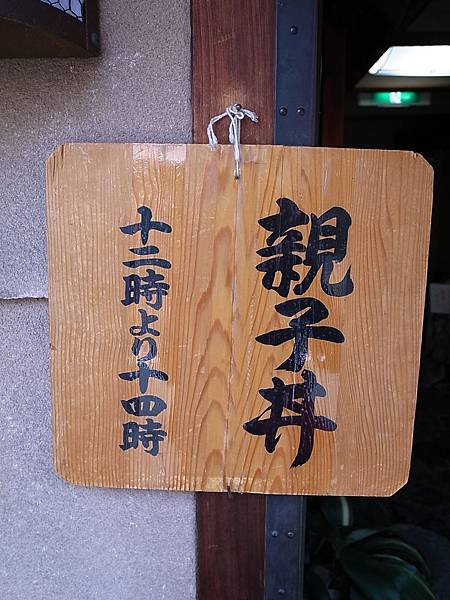 親子丼
十二時より十四時